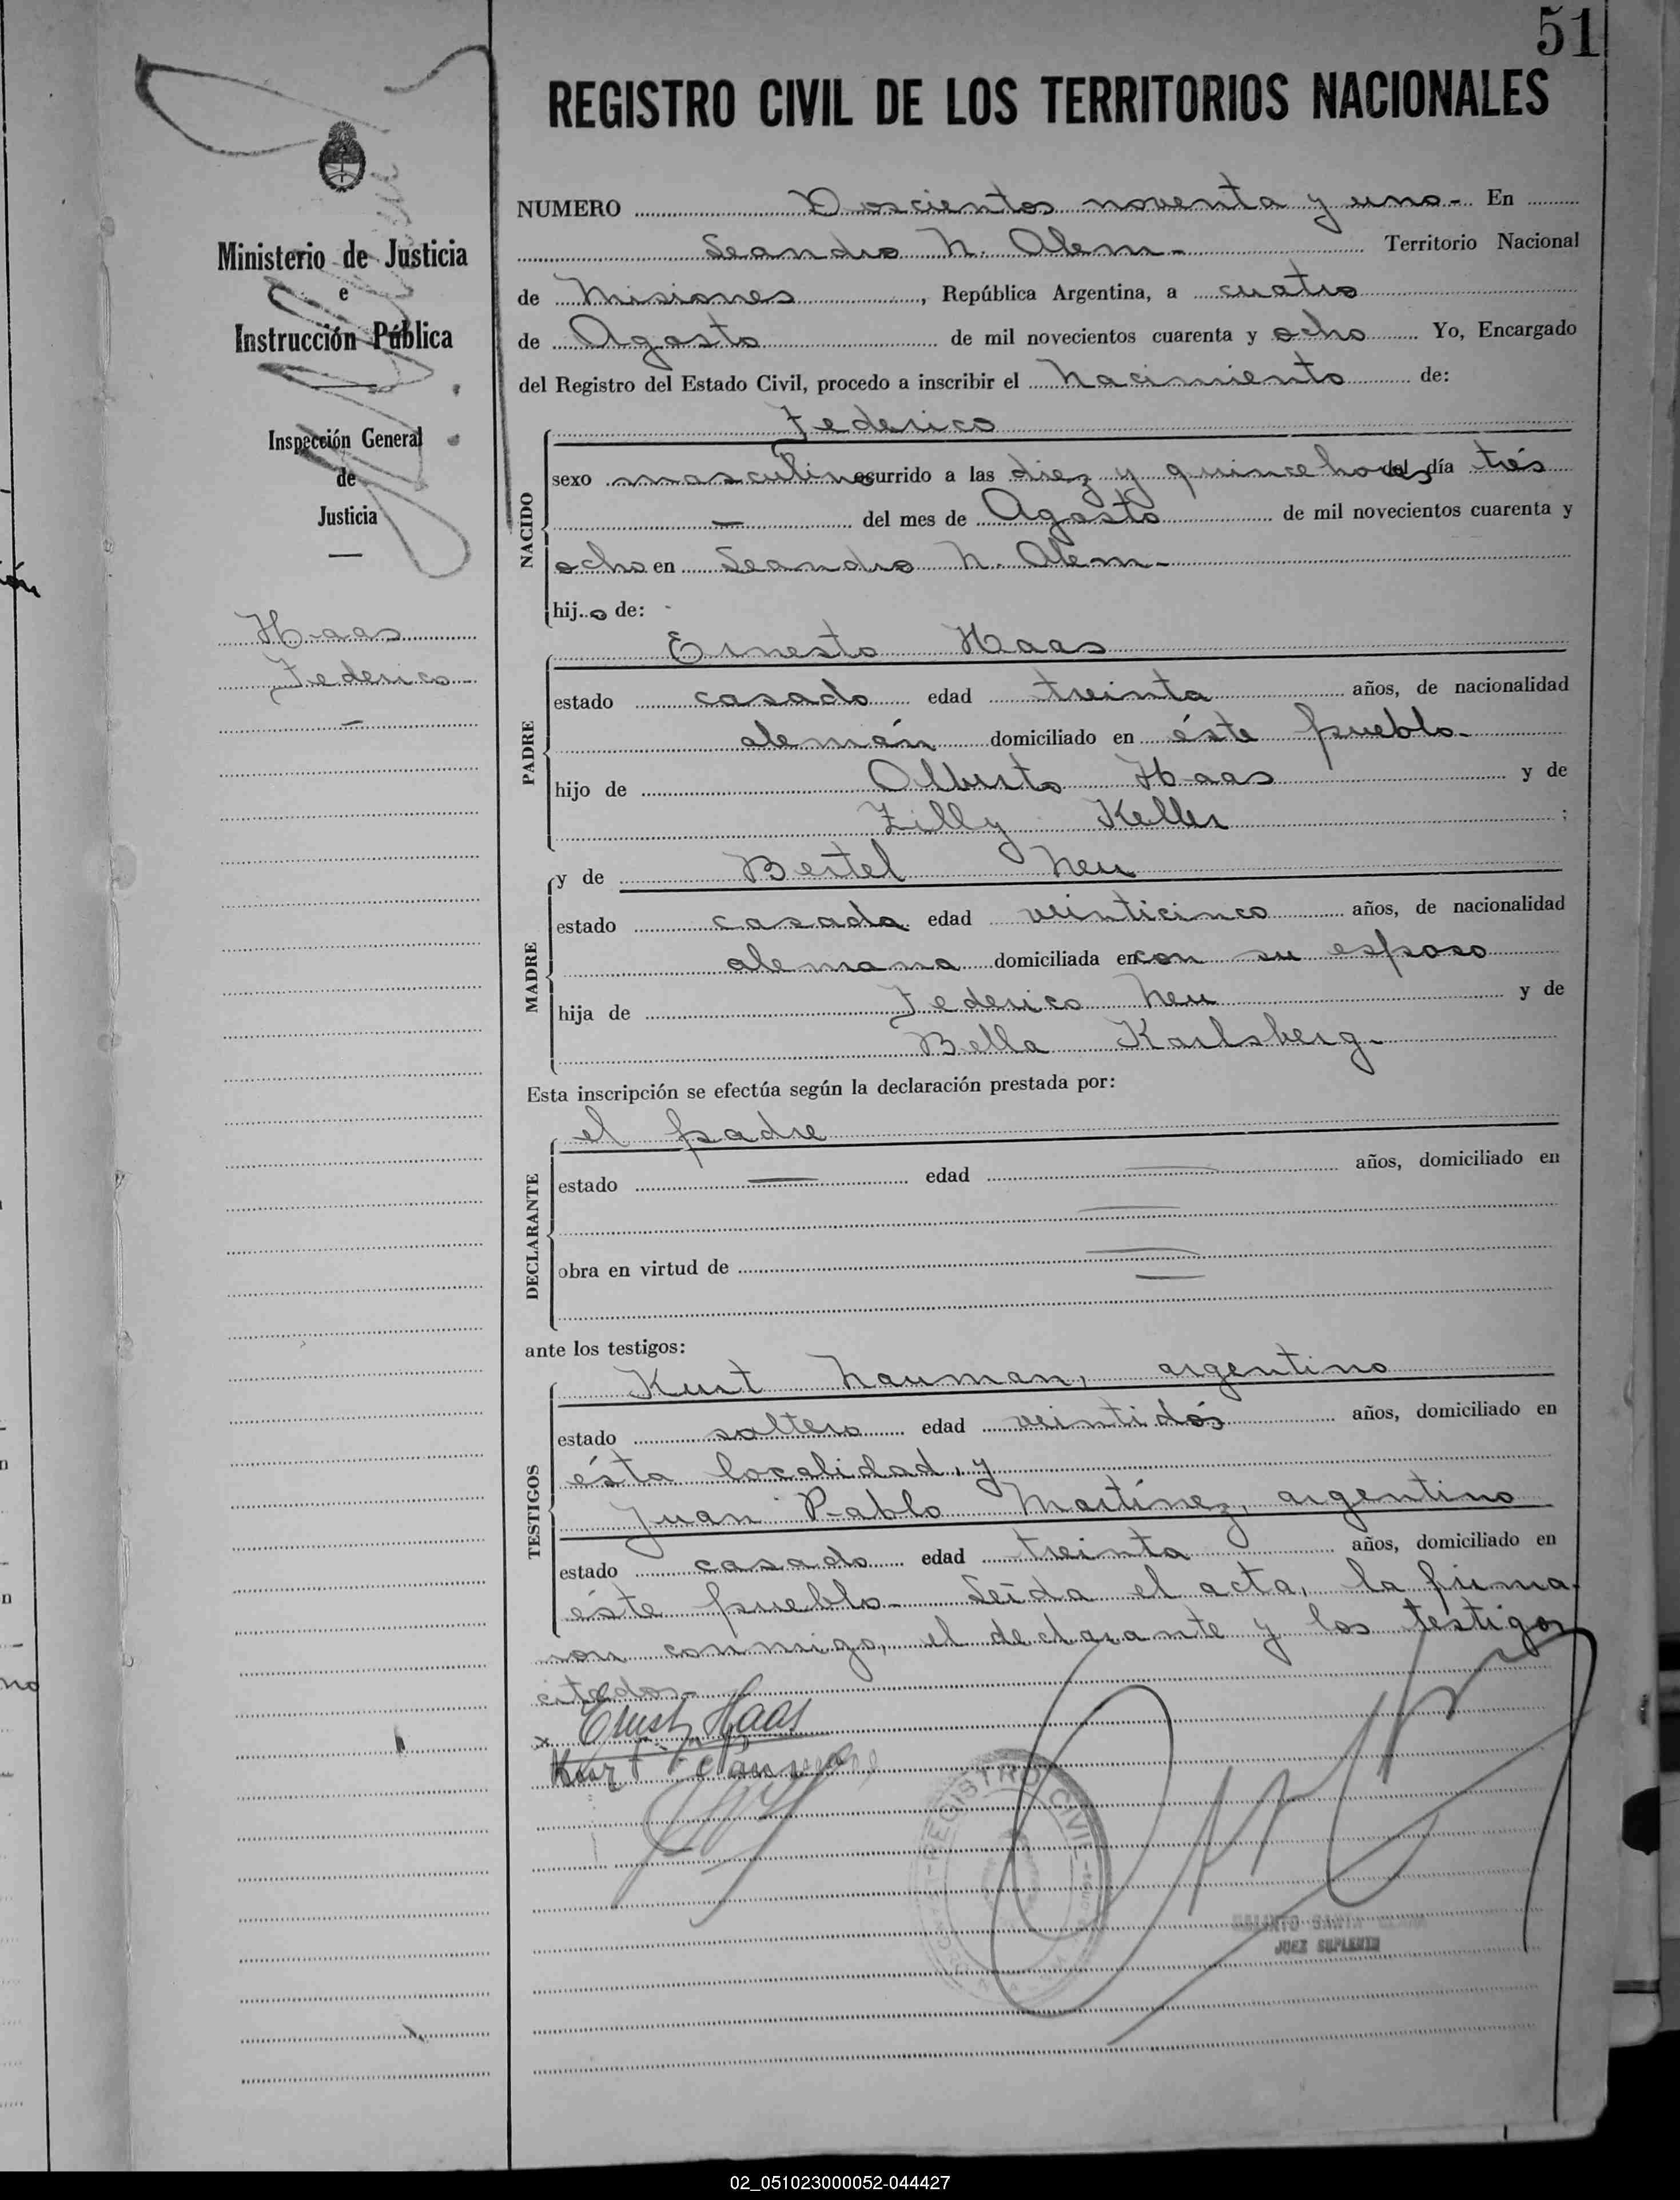 51
REGISTRO CIVIL DE LOS TERRITORIOS NACIONALES
Ministerio de Justicia
e
Instrucción Pública
Inspección General
de
Justicia
Haas
Federico
NUMERO Doscientos noventa y uno.- En
Leandro N. Alem.- Territorio Nacional
de Misiones, República Argentina, a cuatro
de Agosto de mil novecientos cuarenta y ocho Yo, Encargado
del Registro del Estado Civil, procedo a inscribir el Nacimiento de:
NACIDO
Federico
sexo masculino ocurrido a las diez y quince horas del día trés
— del mes de Agosto de mil novecientos cuarenta y
ocho en Leandro N. Alem.-
hijo de:
PADRE
Ernesto Haas
estado casado edad treinta años, de nacionalidad
alemán domiciliado en éste pueblo.-
hijo de Alberto Haas y de
Zilly Keller ;
MADRE
y de Bertel Neu
estado casada edad veinticinco años, de nacionalidad
alemana domiciliada en con su esposo
hija de Federico Neu y de
Bella Karlsberg.-
Esta inscripción se efectúa según la declaración prestada por:
DECLARANTE
el padre
estado — edad — años, domiciliado en
—
obra en virtud de —
—
ante los testigos:
TESTIGOS
Kurt Nauman, argentino
estado soltero edad veintidós años, domiciliado en
ésta localidad, y
Juan Pablo Martínez, argentino
estado casado edad treinta años, domiciliado en
éste pueblo.- Leída el acta, la firma
ron conmigo, el declarante y los testigos
citados.-
x Ernst Haas
Kurt
REGISTRO CIVIL
JUEZ SUPLENTE
02_051023000052-044427